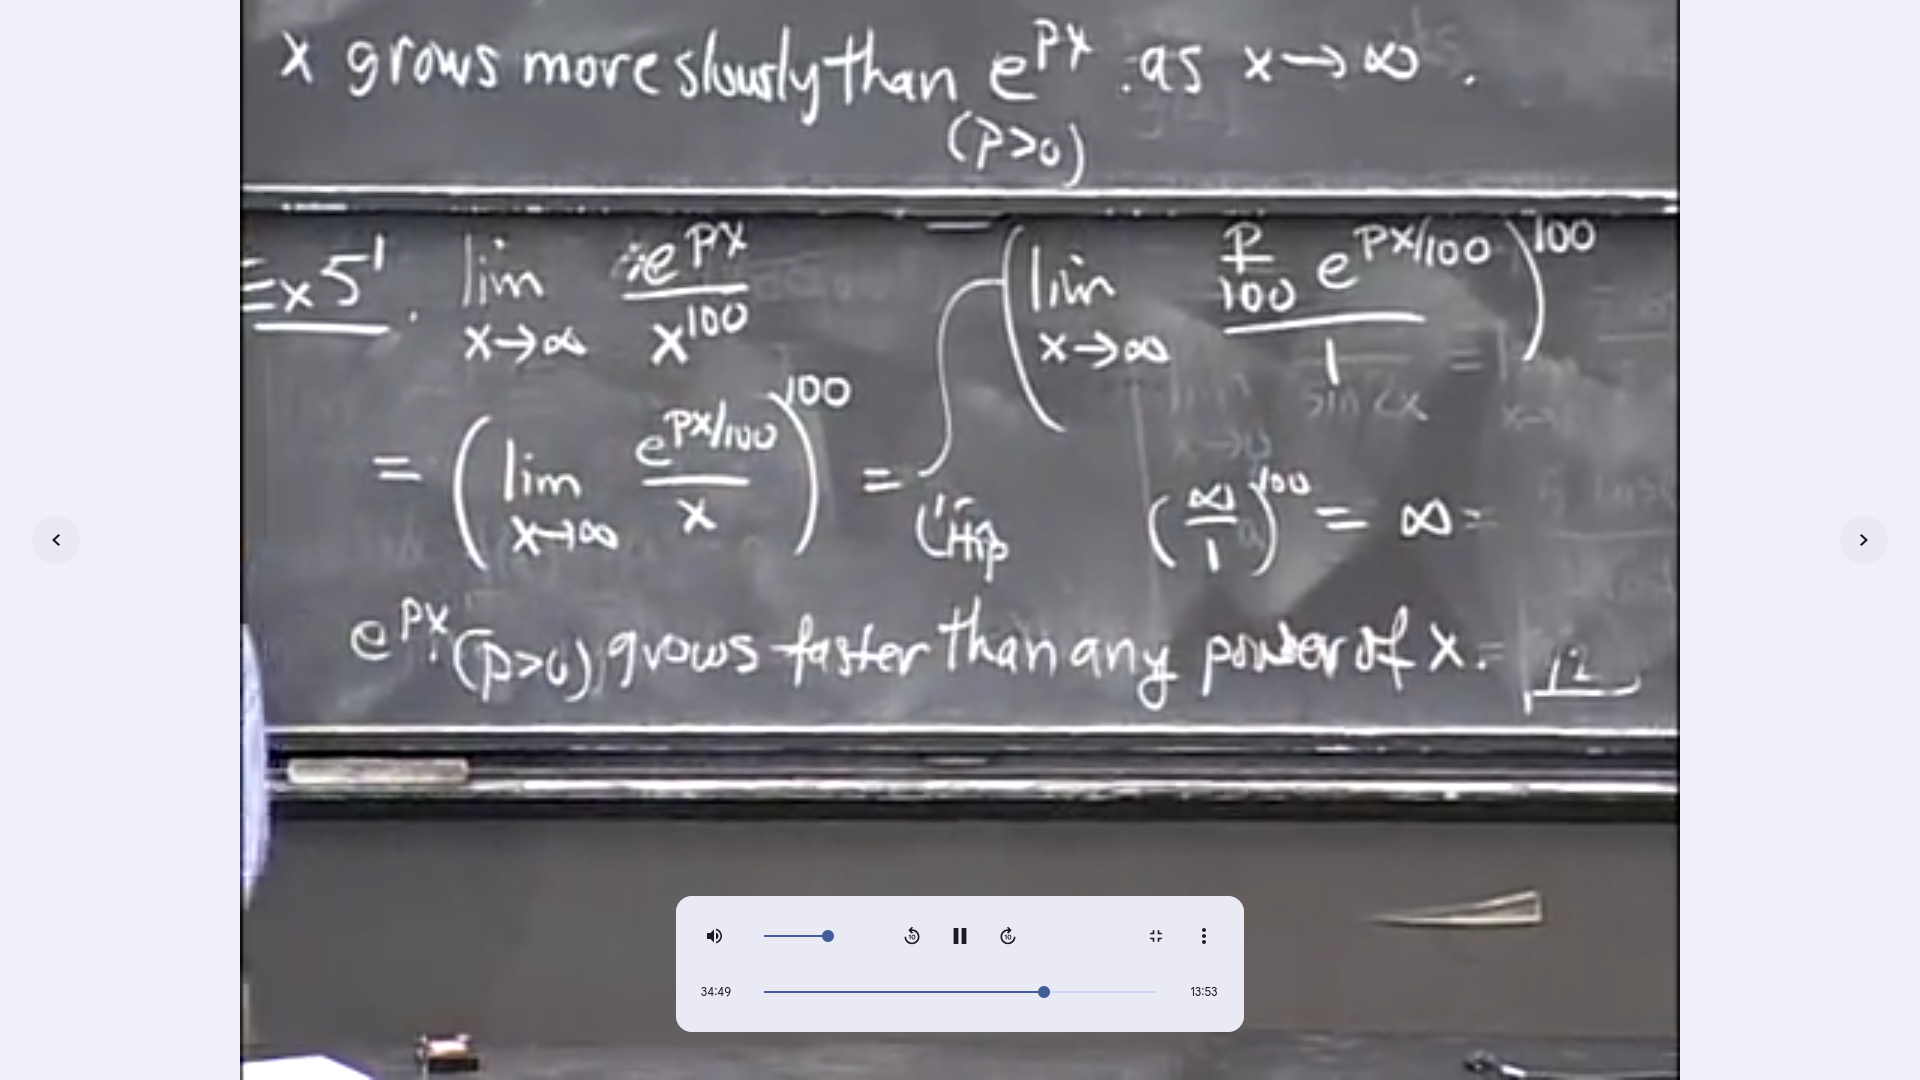 x grows more slowly than e^{px} as x→∞.
(p>0)
Ex 5'. lim_{x→∞} e^{px}/x^{100}
= (lim_{x→∞} e^{px/100}/x)^{100} = (lim_{x→∞} (p/100 e^{px/100})/1)^{100}
L'Hop
(∞/1)^{100} = ∞
e^{px} (p>0) grows faster than any power of x.
12
34:49
13:53